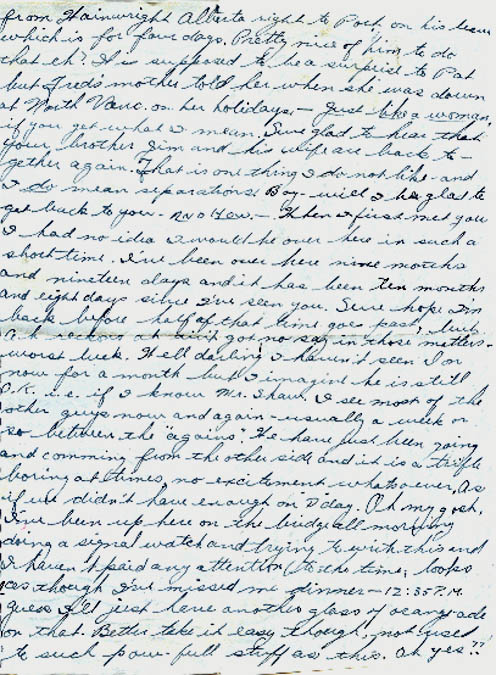 from Wainwright Alberta right to Port on his leave
which is for four days. Pretty nice of him to do
that eh? It is supposed to be a surprise to Pat
but Fred's mother told her when she was down
at North Vanc. on her holidays, - Just like a woman,
if you get what I mean. Sure glad to hear that
your brother Jim and his wife are back to-
gether again. That is one thing I do not like - and
I do mean separations. Boy - will I be glad to
get back to you - Mno Yew. - When I first met you
I had no idea I would be over here in such a
short time. I've been over here nine months
and nineteen days and it has been ten months
and eight days since I've seen you. Sure hope I'm
back before half of that time goes past, but
Ah reckons ah ain't got no say in those matters -
worst luck. Well darling I haven't seen Jon
now for a month but I imagine he is still
O.K. i.e. if I know Mr. Shaw. I see most of the
other guys now and again - usually a week or
so between the "agains". We have just been going
and comming from the other side and it is a trifle
boring at times, no excitement whatsoever. As
if we didn't have enough on "D" day. Oh my gosh,
I've been up here on the bridge all morning
doing a signal watch and trying to write this and
I haven't paid any attention to the time; looks
as though I've missed me dinner - 12:35 P.M.
Guess I'll just have another glass of orang-ade
on that. Better take it easy though, not used
to such pow-full stuff as this. Oh yes!!